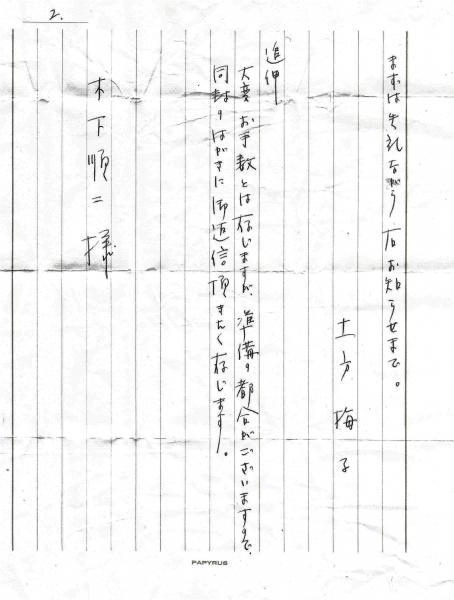 2.
まずは失礼ながら右お知らせまで。
土方梅子
追伸
大変お手数とは存じますが、準備の都合がございますので、
同封のはがきに御返信頂きたく存じます。
木下順二様
PAPYRUS